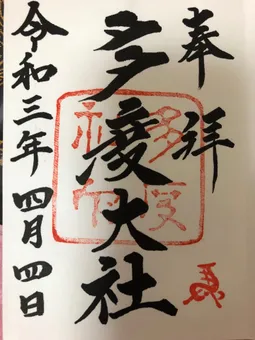 奉拝
多度大社
令和三年四月四日
多度
神社